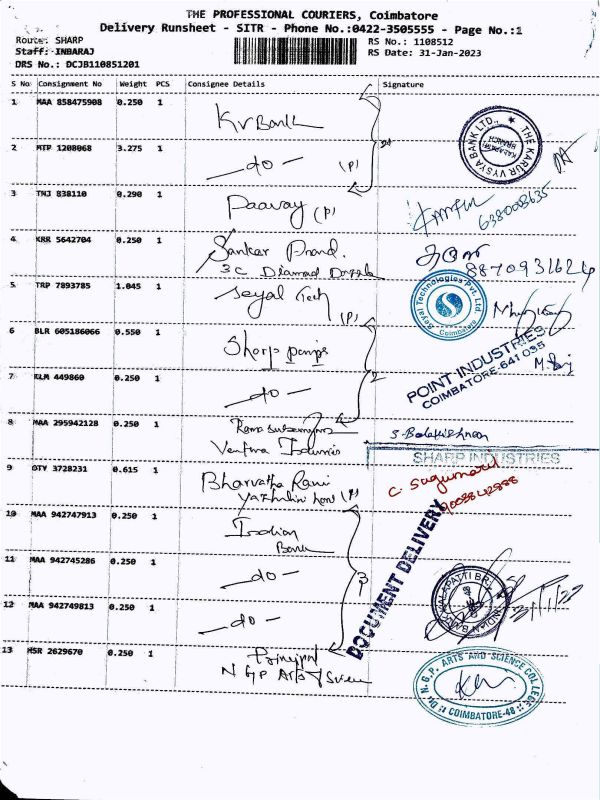 THE PROFESSIONAL COURIERS, Coimbatore
Delivery Runsheet - SITR - Phone No.:0422-3505555 - Page No.:1
Route: SHARP
Staff: INBARAJ
DRS No.: DCJB110851201
RS No.: 1108512
RS Date: 31-Jan-2023
S No Consignment No Weight PCS Consignee Details Signature
1 MAA 858475908 0.250 1 KVBank
THE KARUR VYSYA BANK LTD., KALAPATTI BRANCH
2 MTP 1208068 3.275 1 -do- (P)
3 TNJ 838110 0.290 1 Paavay (P)
4 KRR 5642704 0.250 1 Sankar
3C
8870931624
5 TRP 7893785 1.045 1 Seyal Tech (P)
Seyal Technologies Pvt Ltd Coimbatore
6 BLR 605186066 0.550 1 Sharp pumps
POINT INDUSTRIES
COIMBATORE-641 035
7 KLM 449860 0.250 1 -do- 2
8 MAA 295942128 0.250 1
SHARP INDUSTRIES
9 OTY 3728231 0.615 1 Bharvatha Rani
(P)
C. Sugumar
DOCUMENT DELIVERY
10 MAA 942747913 0.250 1 Indian
Bank
11 MAA 942745286 0.250 1 -do- 3
12 MAA 942749813 0.250 1 -do-
13 MSR 2629670 0.250 1 Principal
N G P Arts & Science
Dr. N.G.P. ARTS AND SCIENCE COLLEGE
COIMBATORE-48